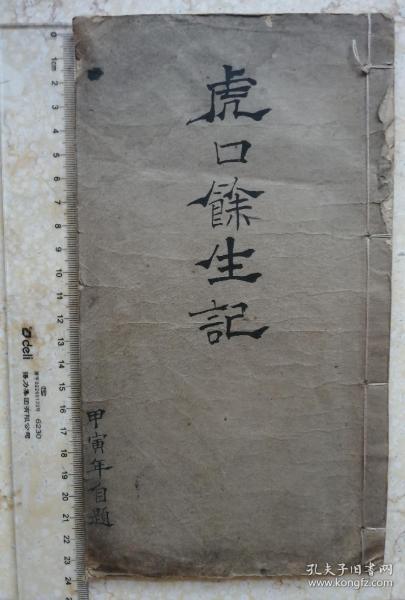 虎口餘生記
甲寅年自題
0 1cm 2 3 4 5 6 7 8 9 10 11 12 13 14 15 16 17 18 19 20 21 22 23 24
deli
得力集团有限公司
6230
孔夫子旧书网
www.kongfz.com